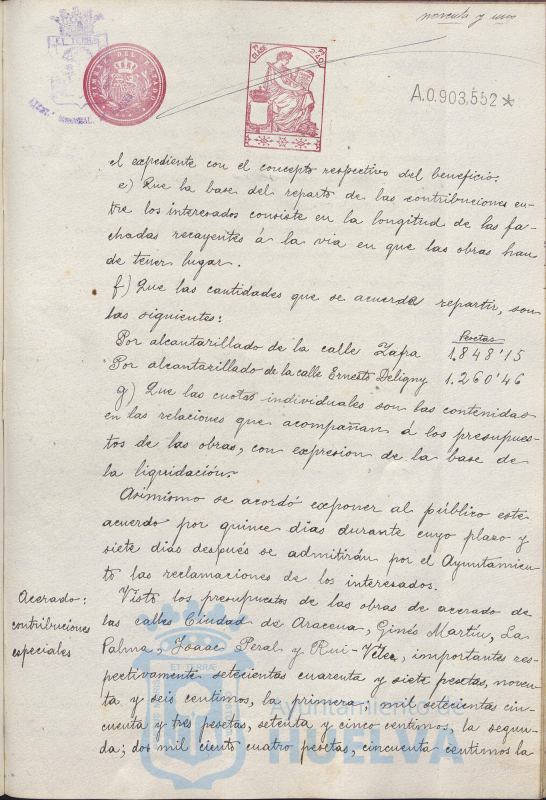 noventa y uno
ET TERRÆ
TIMBRE DEL ESTADO
A.0.903,552*
el expediente con el concepto respectivo del beneficio.
e) Que la base del reparto de las contribuciones en-
tre los interesados consiste en la longitud de las fa-
chadas recayentes á la via en que las obras han
de tener lugar.
f) Que las cantidades que se acuerda repartir, son
las siguientes:
Pesetas
Por alcantarillado de la calle Zafra 1.848'15
Por alcantarillado de la calle Ernesto Deligny 1.260'46
g) Que las cuotas individuales son las contenidas
en las relaciones que acompañan á los presupues-
tos de las obras, con expresion de la base de
la liquidación.
Asimismo se acordó exponer al público este
acuerdo por quince dias durante cuyo plazo y
siete dias después se admitirán por el Ayuntamien-
to las reclamaciones de los interesados.
Acerado:
contribuciones
especiales
Visto los presupuestos de las obras de acerado de
las calles Ciudad de Aracena, Ginés Martín, La
Palma, Isaac Peral y Rui-Vélez, importantes res-
pectivamente setecientas cuarenta y siete pesetas, noven-
ta y seis centimos, la primera; mil setecientas cin-
cuenta y tres pesetas, setenta y cinco centimos, la segun-
da; dos mil ciento cuatro pesetas, cincuenta centimos la
ET TERRÆ
Ayuntamiento de
HUELVA